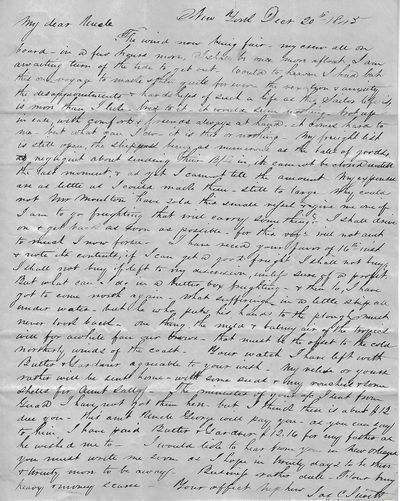 New York Decr 20th 1845
My dear Uncle
The wind now being fair - my crew all on
board - in a few hours more, I shall be once more afloat, I am
awaiting turn of the tide to get out. Would to heaven I had but
this one voyage to make & then quite forever the vexation & anxiety
the disappointments & hardships of such a life as this, Sailor life is,
is more than I like
in ease, with comforts & friends always at hand it comes hard to
me - but what can I do it is that or nothing. My freight list
is still open, the shippers being as numerous as the bales of goods,
& negligent about sending their it cannot be closed until
the last moment, & as yet I cannot tell the amount. My expenses
are as little as I could make them - still to large. Why could
not Mr Moulton have sold this small vessel & given me one if
I am to go freighting that will carry something. I shall drive
on & get back as soon as possible - for this voyg will not amt
to much I now forsee. I have recd your favor of 16th inst
& note its contents, if I can get a good freight I shall not buy,
I shall not buy if left to my discression, unless sure of a profit
But what can I do in a butter box freighting - & then to, I have
got to come north again - What suffering in a little ship all
under water - but he who puts his hands to the plough must
never look back - one thing the mild & balmy air of the tropics
will for awhile fan our brows - that must be the offset to the cold
northerly winds of the coast. Your watch I have left with
Butter & Gardner agreable to your wish - My valise or yours
rather will be sent home - with some seed & and some
shells for Aunt Sally - The of your I sent from
I have not got them here but I think there is abt $12
due you - This amt Uncle George will pay you - as you can say
to him, I have paid Butter & Gardner $12.16 for my father as
he wished me to - I would like to hear from you in New Orleans
you must write me soon as I hope in twenty days to be there
& twenty more to be away. Business rather dull - Flour very
heavy & money scarce Your affect nephew